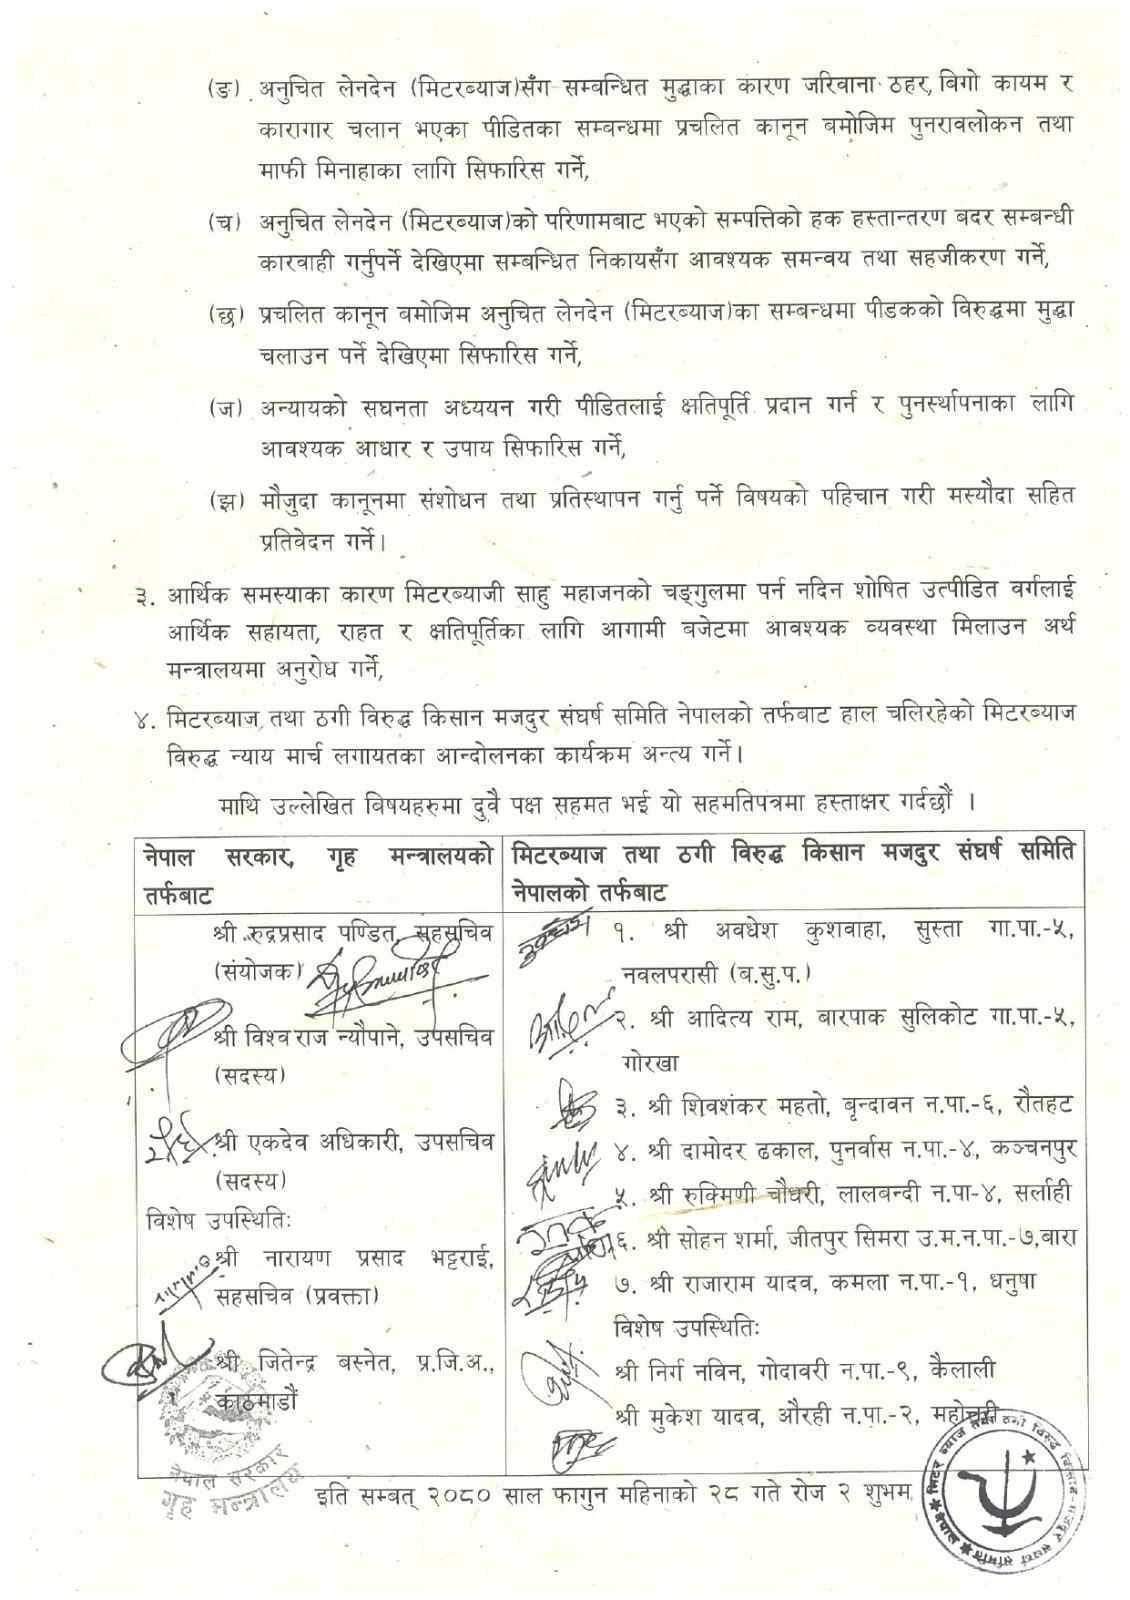 (ङ) अनुचित लेनदेन (मिटरब्याज)सँग सम्बन्धित मुद्धाका कारण जरिवाना ठहर, बिगो कायम र
कारागार चलान भएका पीडितका सम्बन्धमा प्रचलित कानून बमोजिम पुनरावलोकन तथा
माफी मिनाहाका लागि सिफारिस गर्ने,
(च) अनुचित लेनदेन (मिटरब्याज)को परिणामबाट भएको सम्पत्तिको हक हस्तान्तरण बदर सम्बन्धी
कारवाही गर्नुपर्ने देखिएमा सम्बन्धित निकायसँग आवश्यक समन्वय तथा सहजीकरण गर्ने,
(छ) प्रचलित कानून बमोजिम अनुचित लेनदेन (मिटरब्याज)का सम्बन्धमा पीडकको विरुद्धमा मुद्धा
चलाउन पर्ने देखिएमा सिफारिस गर्ने,
(ज) अन्यायको सघनता अध्ययन गरी पीडितलाई क्षतिपूर्ति प्रदान गर्न र पुनर्स्थापनाका लागि
आवश्यक आधार र उपाय सिफारिस गर्ने,
(झ) मौजुदा कानूनमा संशोधन तथा प्रतिस्थापन गर्नु पर्ने विषयको पहिचान गरी मस्यौदा सहित
प्रतिवेदन गर्ने।
३. आर्थिक समस्याका कारण मिटरब्याजी साहु महाजनको चङ्गुलमा पर्न नदिन शोषित उत्पीडित वर्गलाई
आर्थिक सहायता, राहत र क्षतिपूर्तिका लागि आगामी बजेटमा आवश्यक व्यवस्था मिलाउन अर्थ
मन्त्रालयमा अनुरोध गर्ने,
४. मिटरब्याज तथा ठगी विरुद्ध किसान मजदुर संघर्ष समिति नेपालको तर्फबाट हाल चलिरहेको मिटरब्याज
विरुद्ध न्याय मार्च लगायतका आन्दोलनका कार्यक्रम अन्त्य गर्ने।
माथि उल्लेखित विषयहरुमा दुवै पक्ष सहमत भई यो सहमतिपत्रमा हस्ताक्षर गर्दछौं ।
नेपाल सरकार, गृह मन्त्रालयको
तर्फबाट
श्री रुद्रप्रसाद पण्डित, सहसचिव
(संयोजक)
श्री विश्व राज न्यौपाने, उपसचिव
(सदस्य)
श्री एकदेव अधिकारी, उपसचिव
(सदस्य)
विशेष उपस्थितिः
श्री नारायण प्रसाद भट्टराई,
सहसचिव (प्रवक्ता)
श्री जितेन्द्र बस्नेत, प्र.जि.अ.,
काठमाडौं
नेपाल सरकार
गृह मन्त्रालय
मिटरब्याज तथा ठगी विरुद्ध किसान मजदुर संघर्ष समिति
नेपालको तर्फबाट
१. श्री अवधेश कुशवाहा, सुस्ता गा.पा.-५,
नवलपरासी (ब.सु.प.)
२. श्री आदित्य राम, बारपाक सुलिकोट गा.पा.-५,
गोरखा
३. श्री शिवशंकर महतो, बृन्दावन न.पा.-६, रौतहट
४. श्री दामोदर ढकाल, पुनर्वास न.पा.-४, कञ्चनपुर
५. श्री रुक्मिणी चौधरी, लालबन्दी न.पा-४, सर्लाही
६. श्री सोहन शर्मा, जीतपुर सिमरा उ.म.न.पा.-७,बारा
७. श्री राजाराम यादव, कमला न.पा.-१, धनुषा
विशेष उपस्थितिः
श्री निर्ग नविन, गोदावरी न.पा.-९, कैलाली
श्री मुकेश यादव, औरही न.पा.-२, महोत्तरी
इति सम्बत् २०८० साल फागुन महिनाको २८ गते रोज २ शुभम्
मिटर ब्याज तथा ठगी विरुद्ध किसान-मजदुर संघर्ष समिति नेपाल